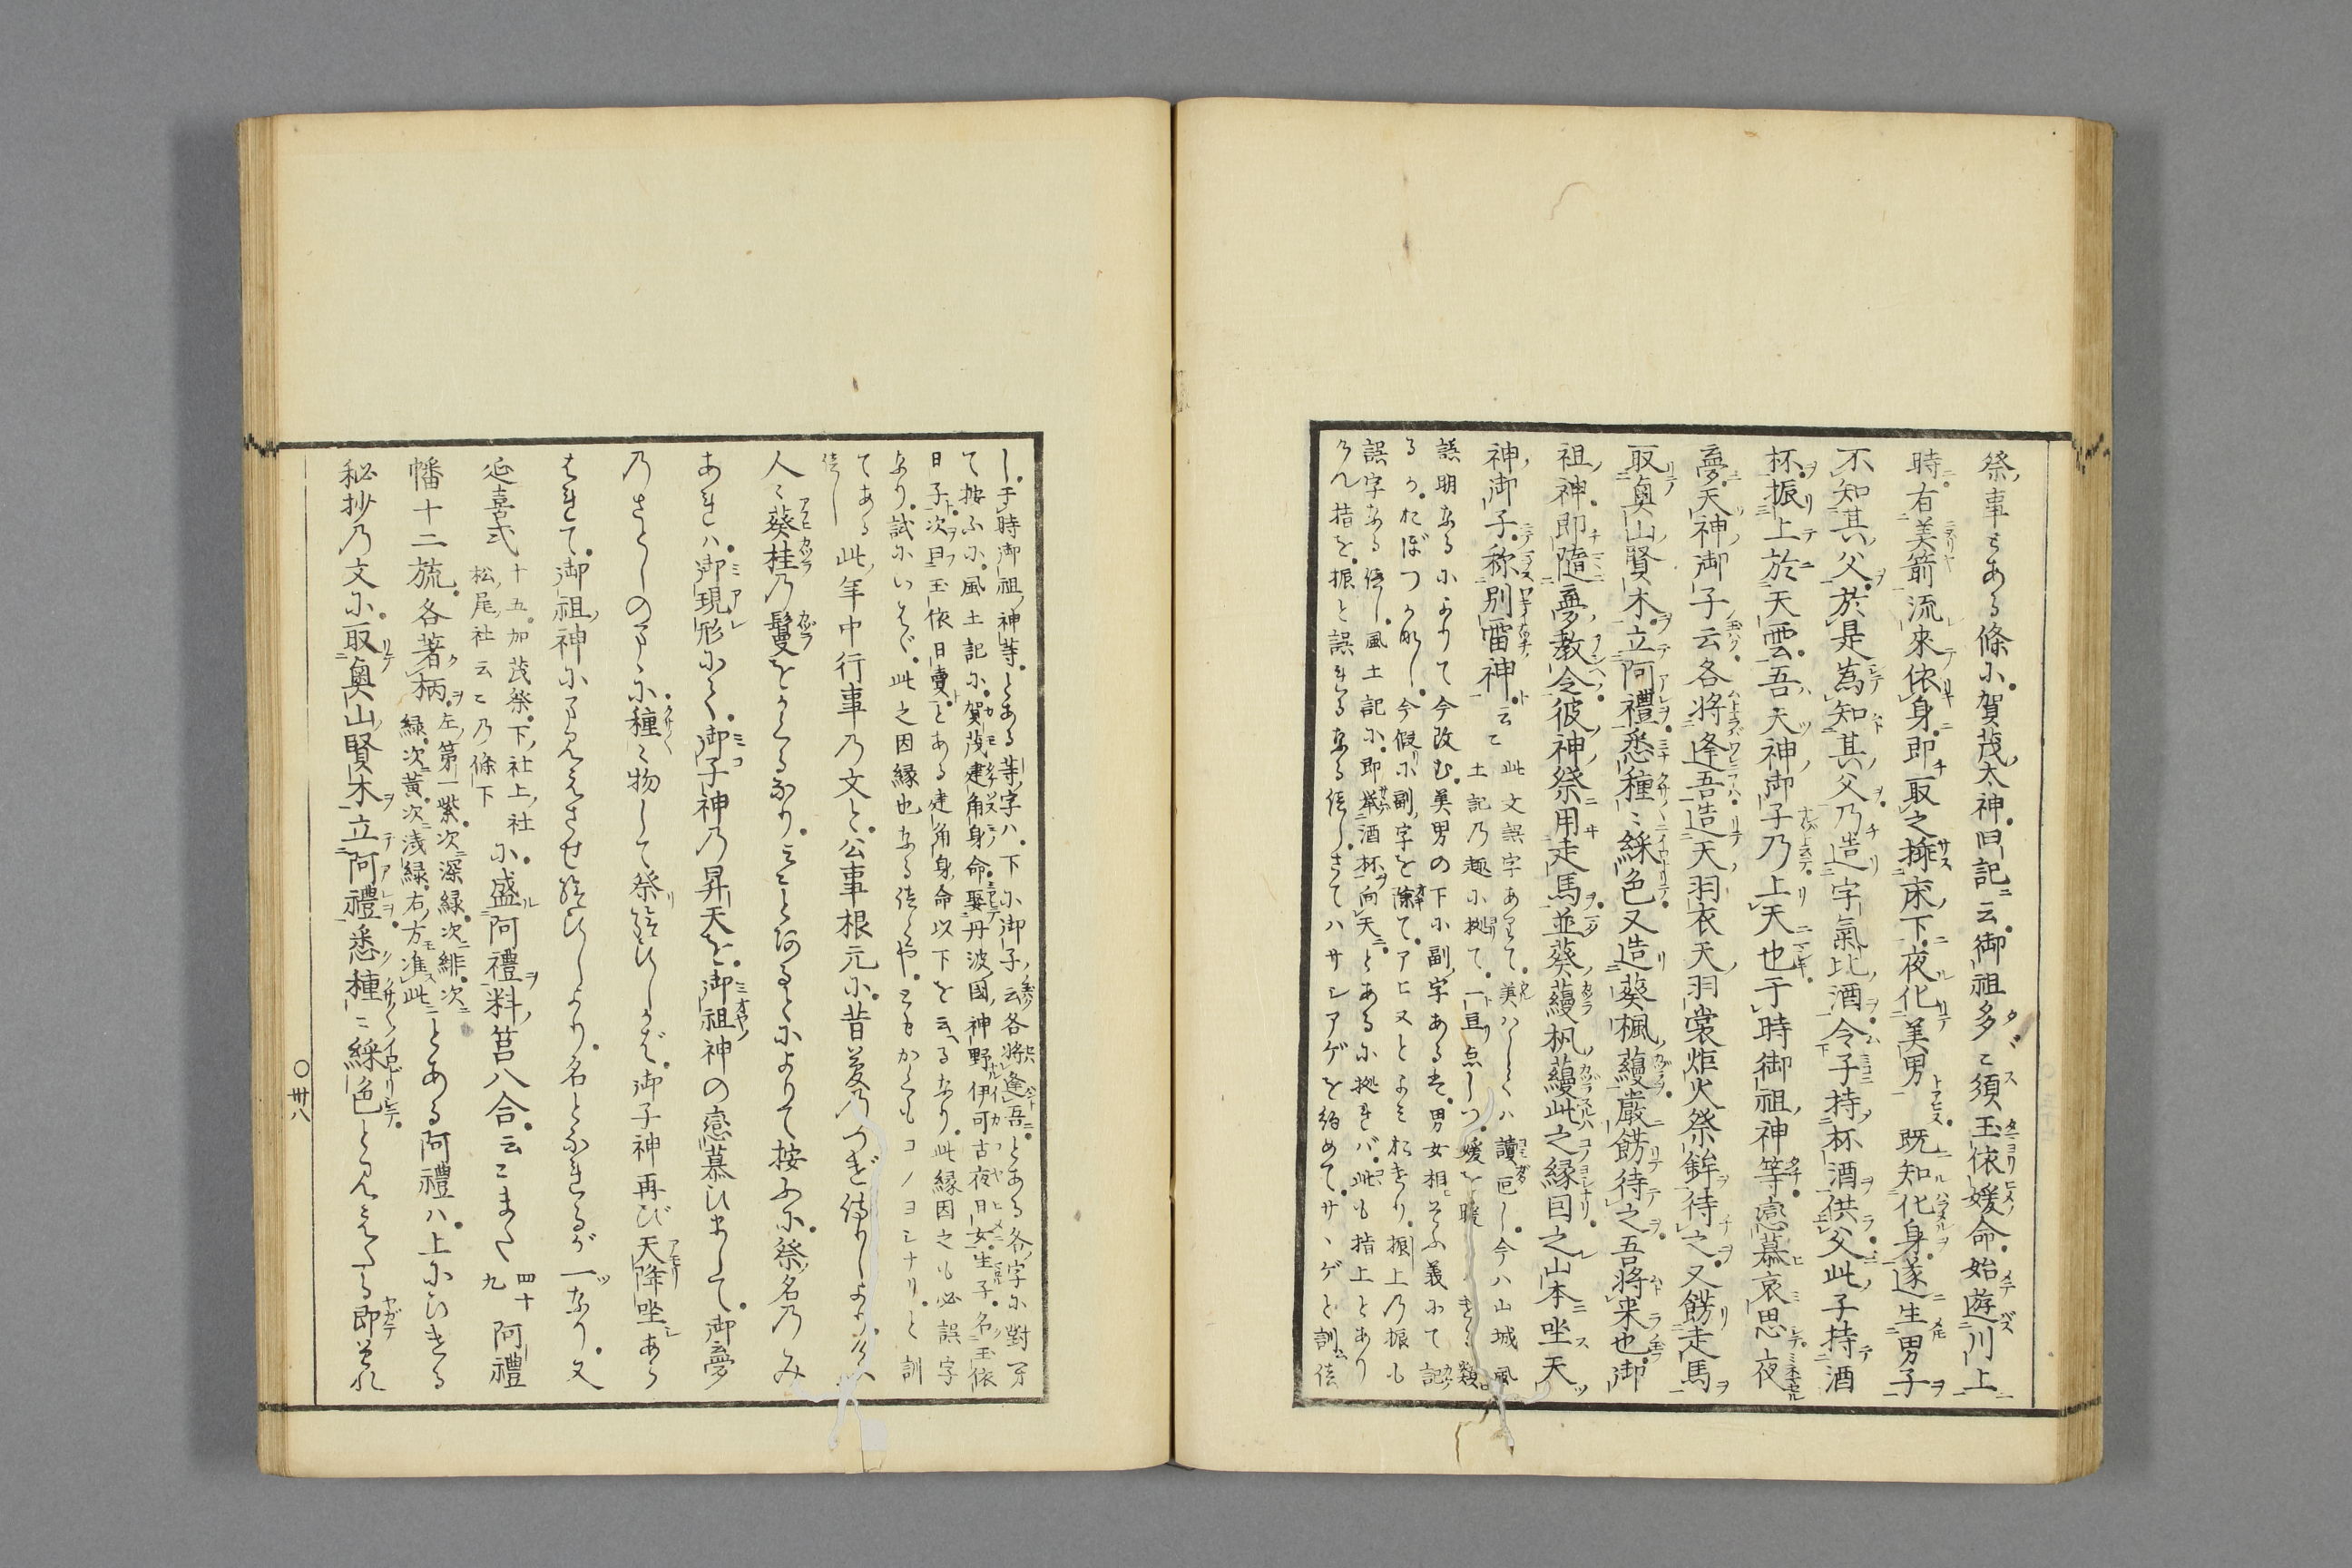 祭事とある條に賀茂大神曰記云御祖多ゞ須玉依媛命始遊川上
時有美箭流來依身即取之揷床下夜化美男既知化身遂生男子
不知其父於是為知其父乃造宇氣比酒令子持杯酒供父此子持酒
杯振上於天雲吾天神御子乃上天也于時御祖神等戀慕哀思夜
夢天神御子云各將逢吾造天羽衣天羽裳炬火祭鉾待之又餝走馬
取奥山賢木立阿禮悉種〻綵色又造葵楓蘰嚴餝待之吾將来也御
祖神即隨夢敎令彼神祭用走馬並葵蘰楓蘰此之縁目之山本坐天
神御子称別雷神云〻
此文誤字ありて美はしくハ讀
し今ハ山城風
土記乃趣に拠て一
誤明なるによりて今改む美男の下に副字あるは男女相そふ義にて記
るかおぼつかなし今假に副字を除てアヒヌとよみおきたり振上乃振も
誤字なるべし風土記に即擧酒杯向天とあるに拠れバ此も指上とあり
けん指を振と誤れるなるべしさてハサシアゲを約めてサヽゲと訓べ
し于時御祖神等とある等字ハ下に御子云各將逢吾とある各字に對
て按ふに風土記に賀茂建角身命娶丹波國神野伊可古夜日女生子名玉依
日子次曰玉依日賣とある建角身命以下を云るなり此縁因之も必誤字
なり試にいはゞ此之因縁也なるべくやさらばかくもコノヨシナリと訓
べし
てある此年中行事乃文と公事根元に昔葵乃
人〻葵桂乃鬘をかくるなりみえとあるとによりて按ふに祭名乃み
あれハ御現形にて御子神乃昇天を御祖神の戀慕ひまして御夢
乃さとしのまゝに種〻物して祭給ひしかば御子神再び天降坐あら
はれて御祖神にまみえさせ給ひしより名となれるが一なり又
延喜式
十五加茂祭下社上社
松尾社云〻乃條下
に盛阿禮料筥八合云〻また
四十
九
阿禮
幡十二旒各著柄
左第一紫次深緑次緋次
緑次黃次浅緑右方准此
とある阿禮ハ上にひきる
秘抄乃文に取奥山賢木立阿禮悉種〻綵色と見えたる即それ
〇卅八